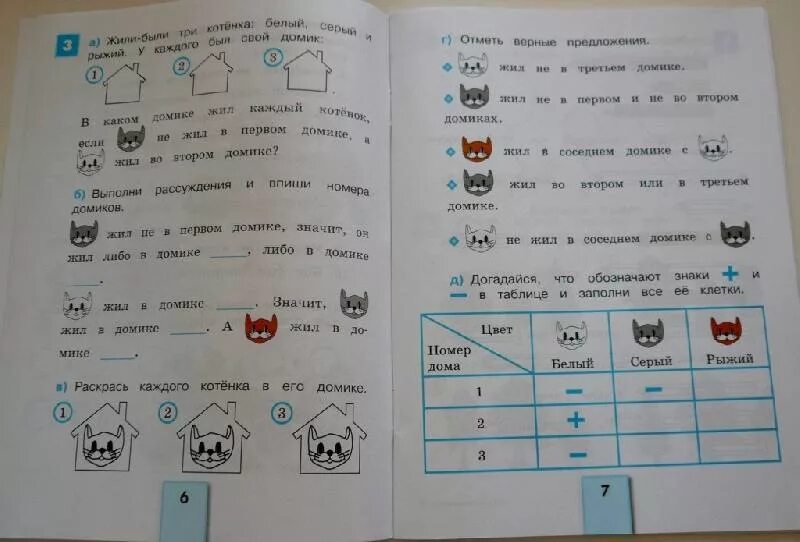 3 а) Жили-были три котёнка: белый, серый и
рыжий. У каждого был свой домик:
1 2 3
В каком домике жил каждый котёнок,
если не жил в первом домике, а
жил во втором домике?
б) Выполни рассуждения и впиши номера
домиков.
жил не в первом домике, значит, он
жил либо в домике ____, либо в домике
____.
жил в домике ____. Значит,
жил в домике ____. А жил в до-
мике ____.
в) Раскрась каждого котёнка в его домике.
1 2 3
6
г) Отметь верные предложения.
жил не в третьем домике.
жил не в первом и не во втором
домиках.
жил в соседнем домике с .
жил во втором или в третьем
домике.
не жил в соседнем домике с .
д) Догадайся, что обозначают знаки + и
− в таблице и заполни все её клетки.
Цвет
Номер
дома
Белый Серый Рыжий
1 − −
2 +
3 −
7